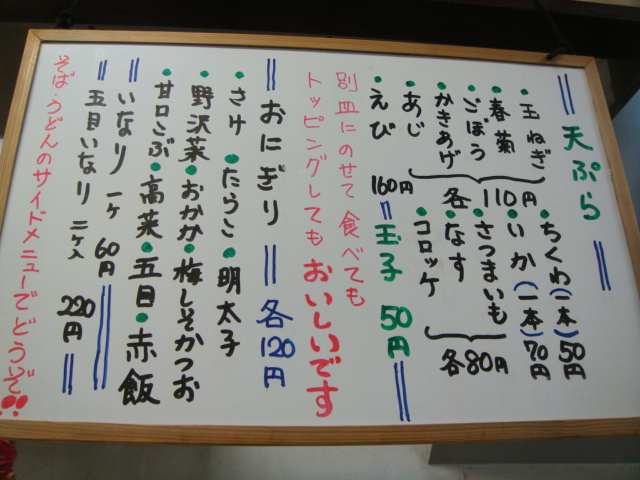 天ぷら
・玉ねぎ
・春菊
・ごぼう
・かきあげ
・あじ
各110円
・えび 160円
・ちくわ(一本)50円
・いか(一本)70円
・さつまいも
・なす
・コロッケ
各80円
玉子 50円
別皿にのせて食べても
トッピングしてもおいしいです
おにぎり 各120円
・さけ ・たらこ ・明太子
・野沢菜 ・おかか ・梅しそかつお
・甘口こぶ ・高菜 ・五目 ・赤飯
いなり 一ヶ 60円
五目いなり 二ヶ入 220円
そば・うどんのサイドメニューでどうぞ!!